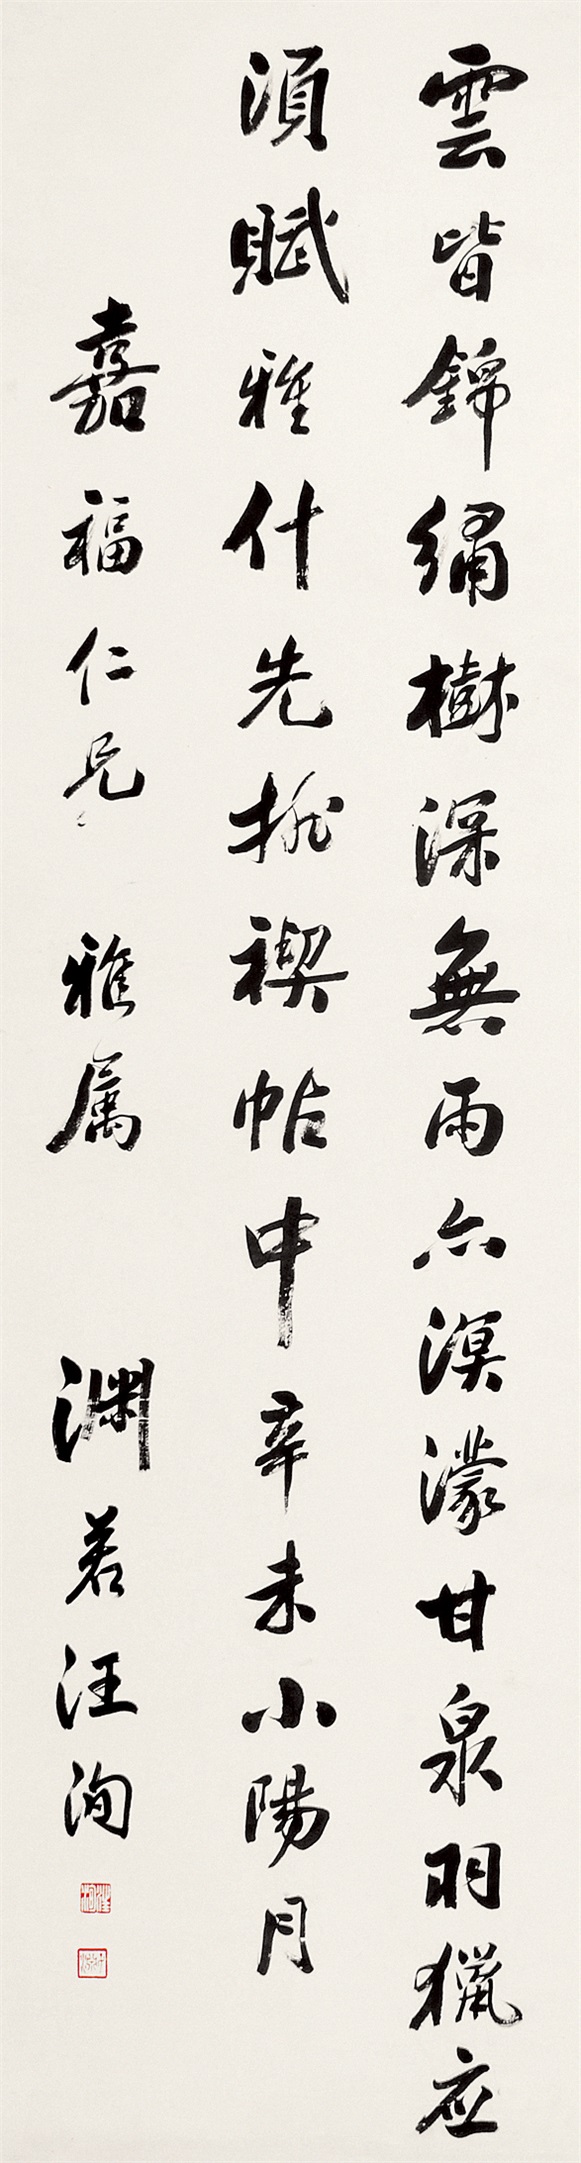 雲皆錦繡樹深無雨亦溟濛甘泉羽獵應
須賦雅什先挑禊帖中辛未小陽月
嘉福仁兄 雅属 渊若汪洵